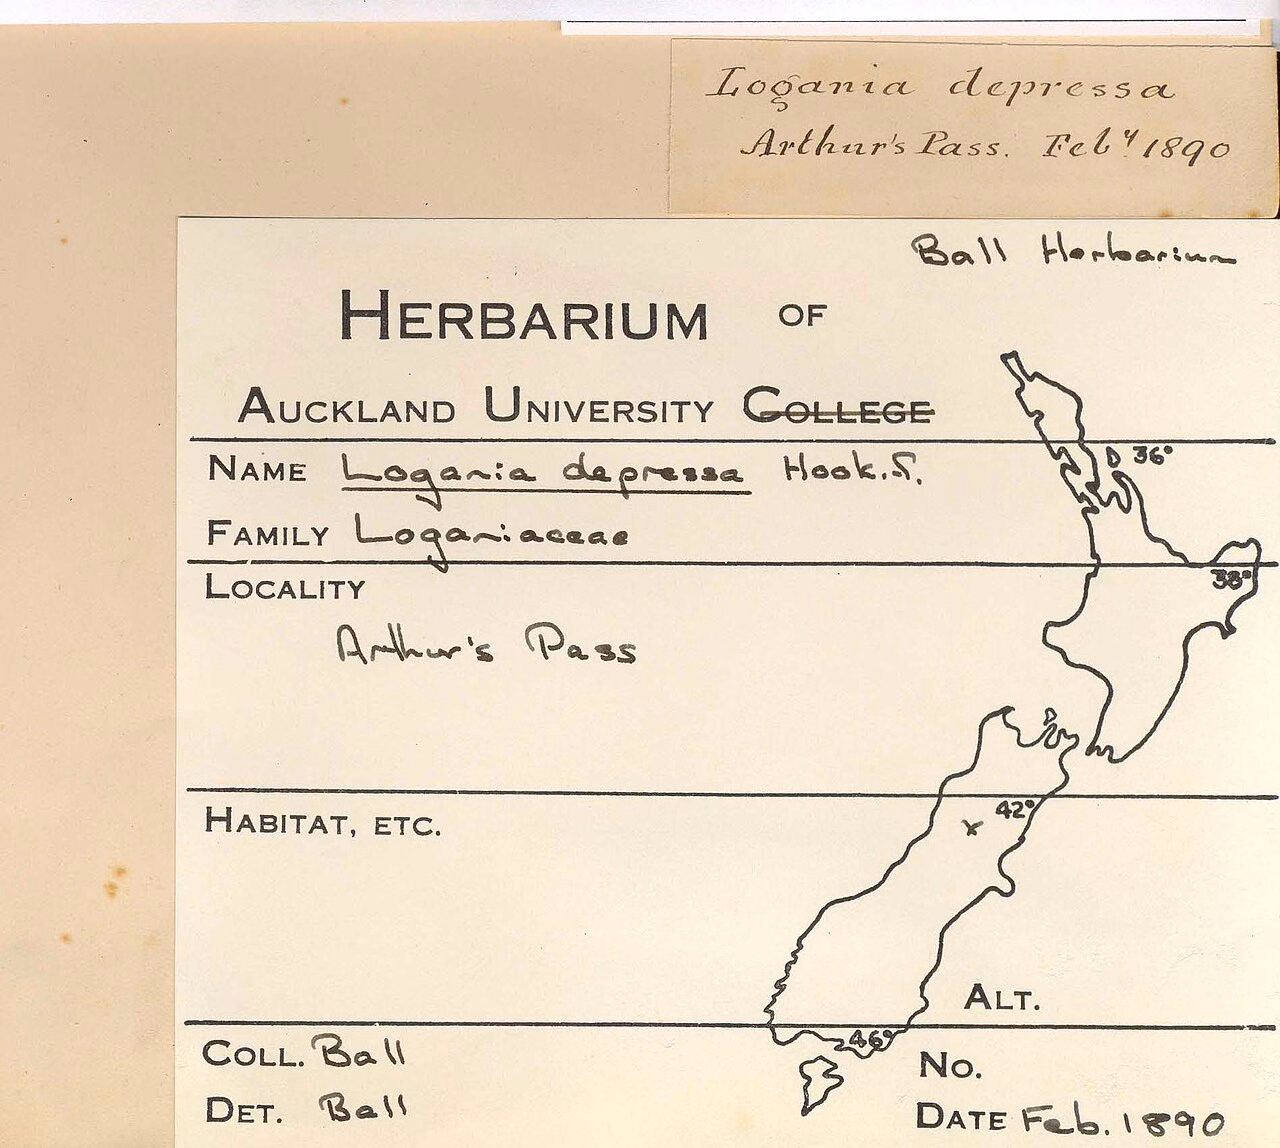 Logania depressa
Arthur's Pass. Feby. 1890
Ball Herbarium
HERBARIUM OF
AUCKLAND UNIVERSITY COLLEGE
NAME Logania depressa Hook.f.
36°
FAMILY Loganiaceae
38°
LOCALITY
Arthur's Pass
42°
x
HABITAT, ETC.
ALT.
46°
COLL. Ball
NO.
DET. Ball
DATE Feb. 1890